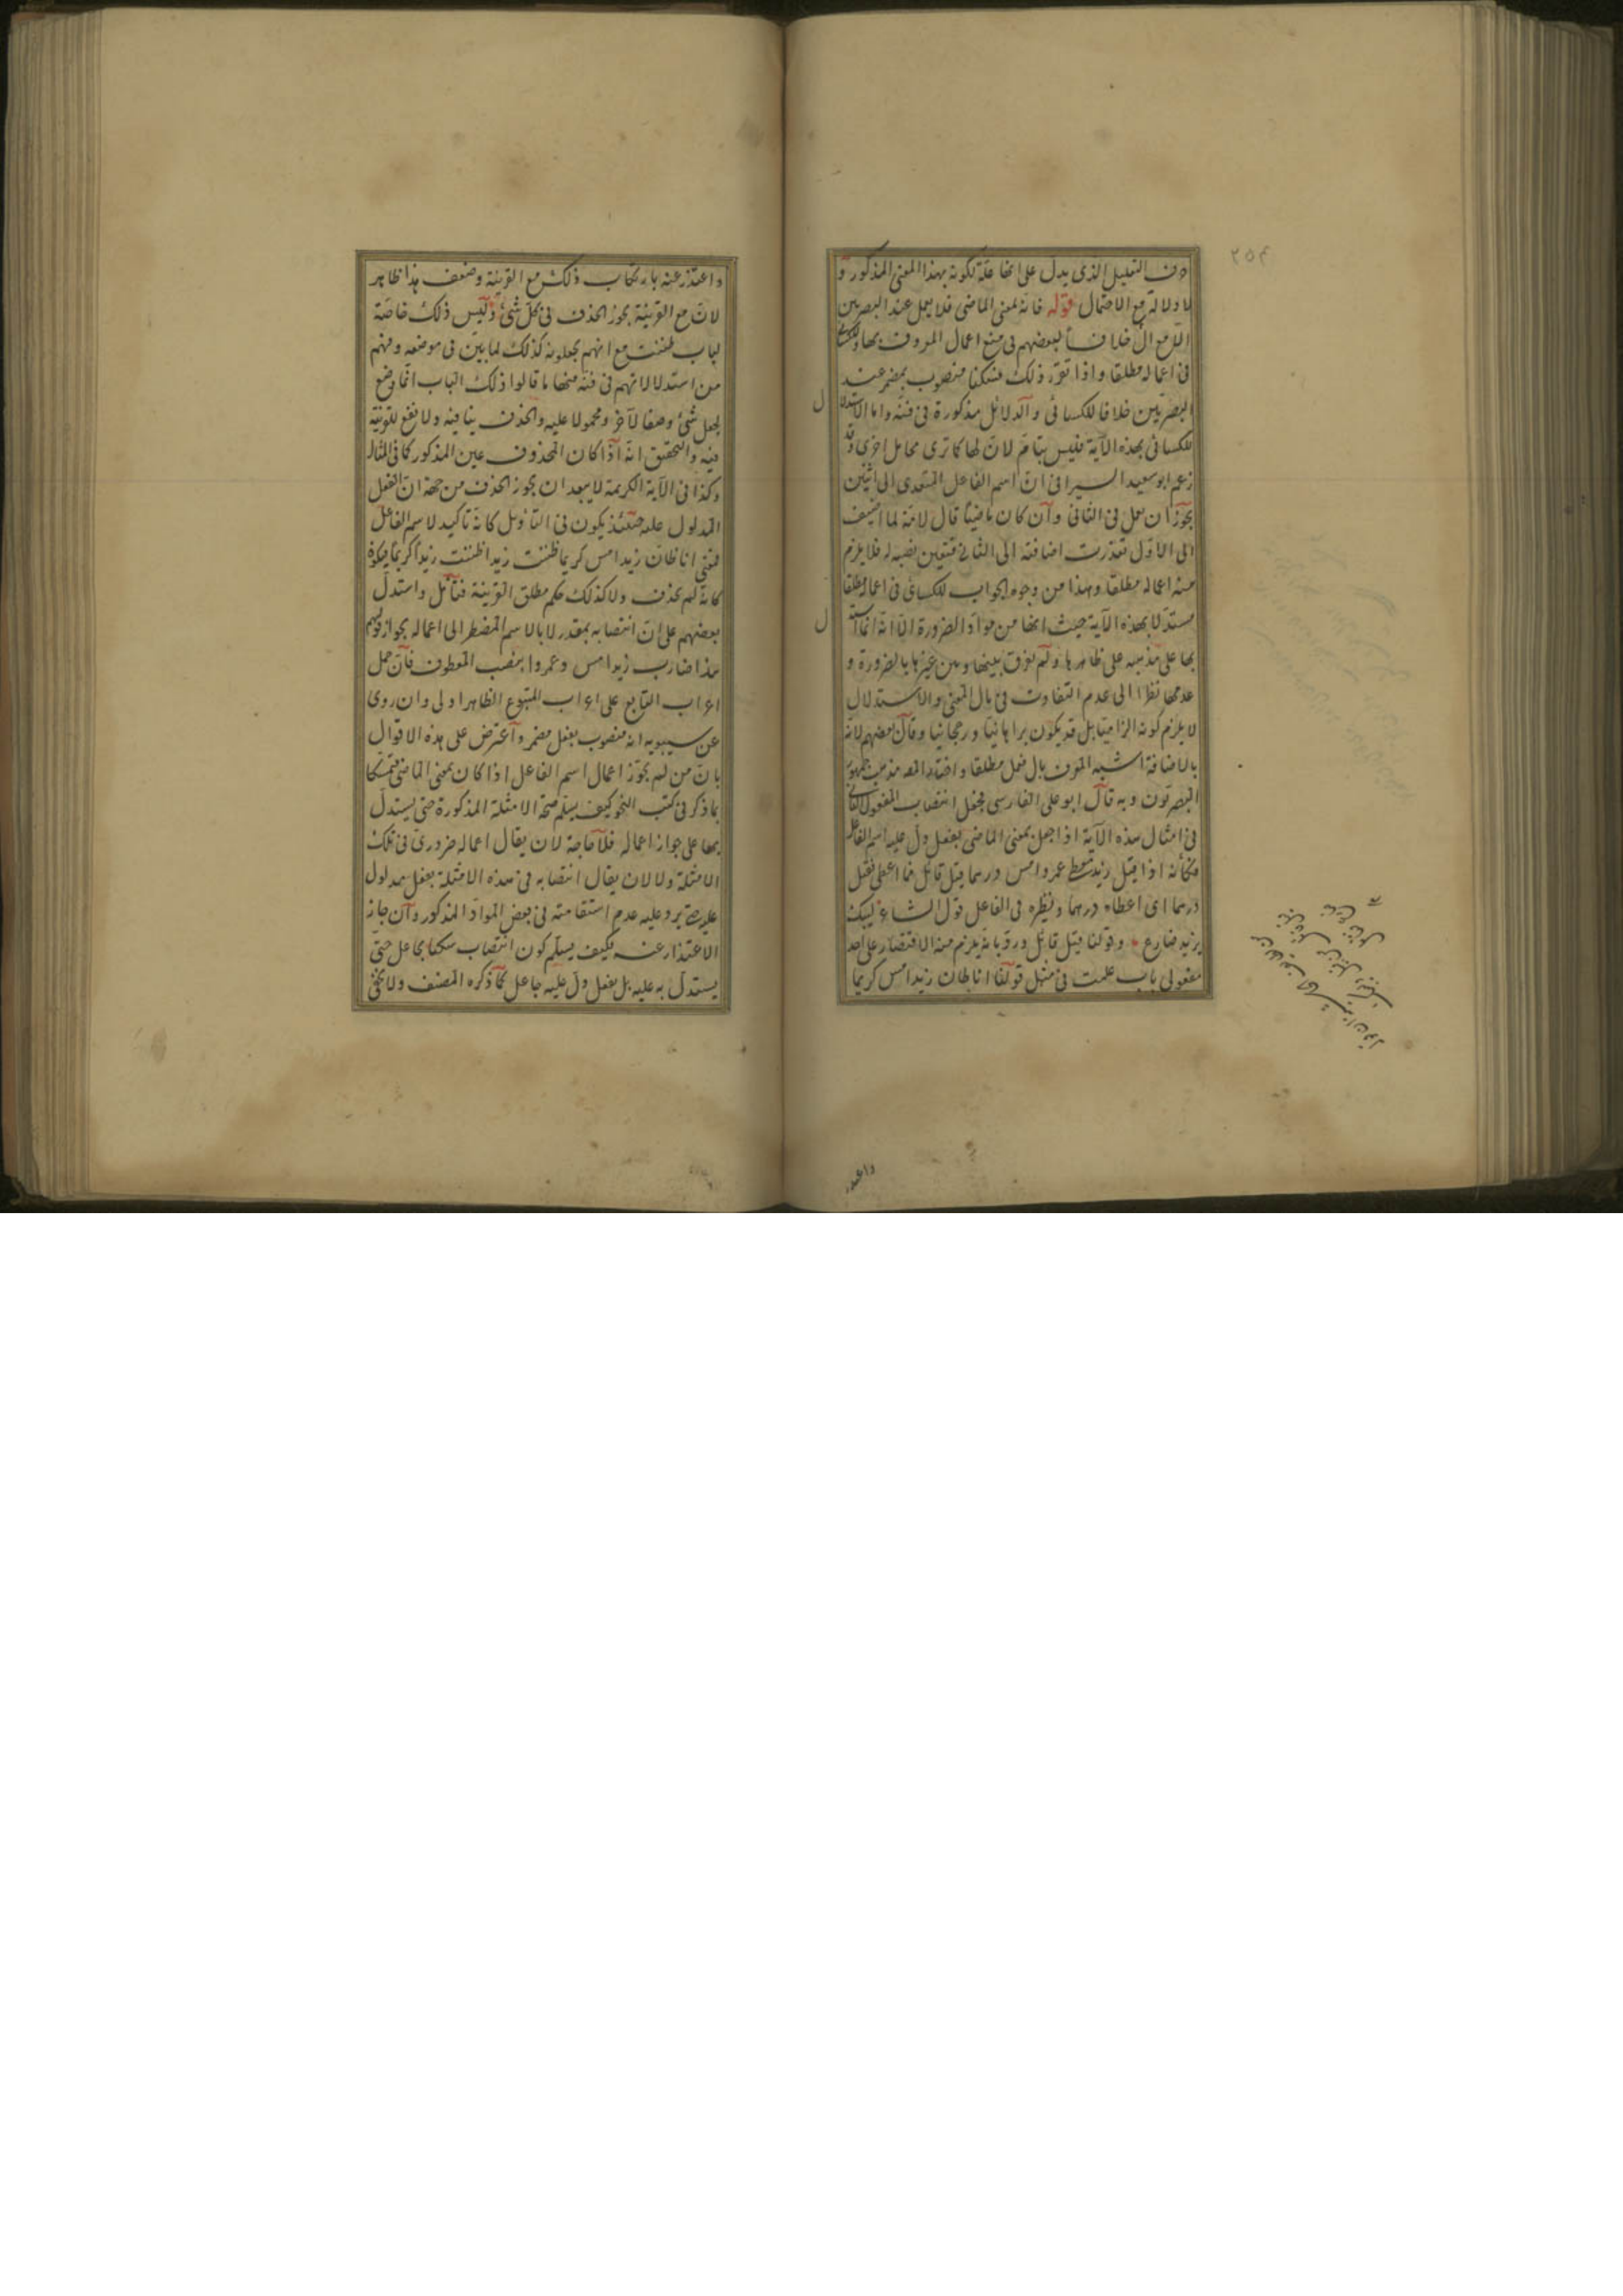 ٢٥٤
دف التعليل الذى يدل على انها علة لكونه بهذا المعنى المذكور و
لا دلالة مع الاحتمال قوله فانه بمعنى الماضى فلا يعمل عند البصريين
الا مع ال خلافا لبعضهم فى منع اعمال المعرف بها وللكسائى
فى اعماله مطلقا واذا تقرر ذلك فسكنا منصوب بمضمر عند
البصريين خلافا للكسائى والدلائل مذكورة فى فنه واما الاستدلال
للكسائى بهذه الآية فليس بتام لان لها كما ترى محامل اخرى وقد
زعم ابو سعيد السيرافى ان اسم الفاعل المتعدى الى اثنين
يجوز ان يعمل فى الثانى وان كان ماضيا قال لانه لما اضيف
الى الاول تعذرت اضافته الى الثانى فتعين نصبه له فلا يلزم
منه اعماله مطلقا وهذا من وجوه الجواب للكسائى فى اعماله مطلقا
مستدلا بهذه الآية حيث انها من مواد الضرورة الا انه انما استدل
بها على مذهبه على ظاهرها ولم يفرق بينها وبين غيرها بالضرورة و
عدمها نظرا الى عدم التفاوت فى بال المعنى والاستدلال
لا يلزم كونه الزاميا بل قد يكون برهانيا ورجحانيا وقال بعضهم لانه
بالاضافة اشبه المعرف بال فعمل مطلقا واختار المصـ مذهب جمهور
البصريون وبه قال ابو على الفارسى فجعل انتصاب المفعول الثانى
فى امثال هذه الآية اذا جعل بمعنى الماضى بفعل دل عليه اسم الفاعل
فكأنه اذا قيل زيد معطى عمرو امس درهما قيل قائل فما اعطى فقيل
درهما اى اعطاه درهما ونظيره فى الفاعل قول الشاعر ليبك
يزيد ضارع وقولنا قيل قائل ورد بانه يلزم منه الاقتصار على احد
مفعولى باب علمت فى مثل قولنا انا ظان زيد امس كريما
واعتذر
واعتذر عنه بارتكاب ذلك مع القرينة وضعف هذا ظاهر
لان مع القرينة يجوز الحذف فى كل شئ وليس ذلك خاصة
لباب ظننت مع انهم يجعلونه كذلك لما بين فى موضعه وفهم
من استدلالاتهم فى فنه منها ما قالوا ذلك الباب انما وضع
لجعل شئ وصفا لآخر ومحمولا عليه والحذف ينافيه ولا نفع للقرينة
فيه والتحقيق انه اذا كان المحذوف عين المذكور كما فى المثال
وكذا فى الآية الكريمة لا يبعد ان يجوز الحذف من جهة ان الفعل
المدلول عليه حينئذ يكون فى التأويل كانه تأكيد لاسم الفاعل
فمعنى انا ظان زيد امس كريما ظننت زيدا ظننت زيدا كريما فيكون
كانه لم يحذف ولا كذلك حكم مطلق القرينة فتأمل واستدل
بعضهم على ان انتصابه بمقدر لا بالاسم المضطر الى اعماله بجواز قولهم
هذا ضارب زيد امس وعمروا بنصب المعطوف فان حمل
اعراب التابع على اعراب المتبوع الظاهر اولى وان روى
عن سيبويه انه منصوب بفعل مضمر واعترض على هذه الاقوال
بان من لم يجوز اعمال اسم الفاعل اذا كان بمعنى الماضى متمسكا
بما ذكر فى كتب النحو كيف يسلم صحة الامثلة المذكورة حتى يستدل
بها على جواز اعماله فلا حاجة لان يقال اعماله ضرورى فى تلك
الامثلة ولا لان يقال انتصابه فى هذه الامثلة بفعل مدلول
عليه حتى يرد عليه عدم استقامته فى بعض المواد المذكور وان جاز
الاعتذار عنه فكيف يسلم كون انتصاب سكنا بجاعل حتى
يستدل به عليه بل بفعل دل عليه جاعل كما ذكره المصنف ولا يخفى